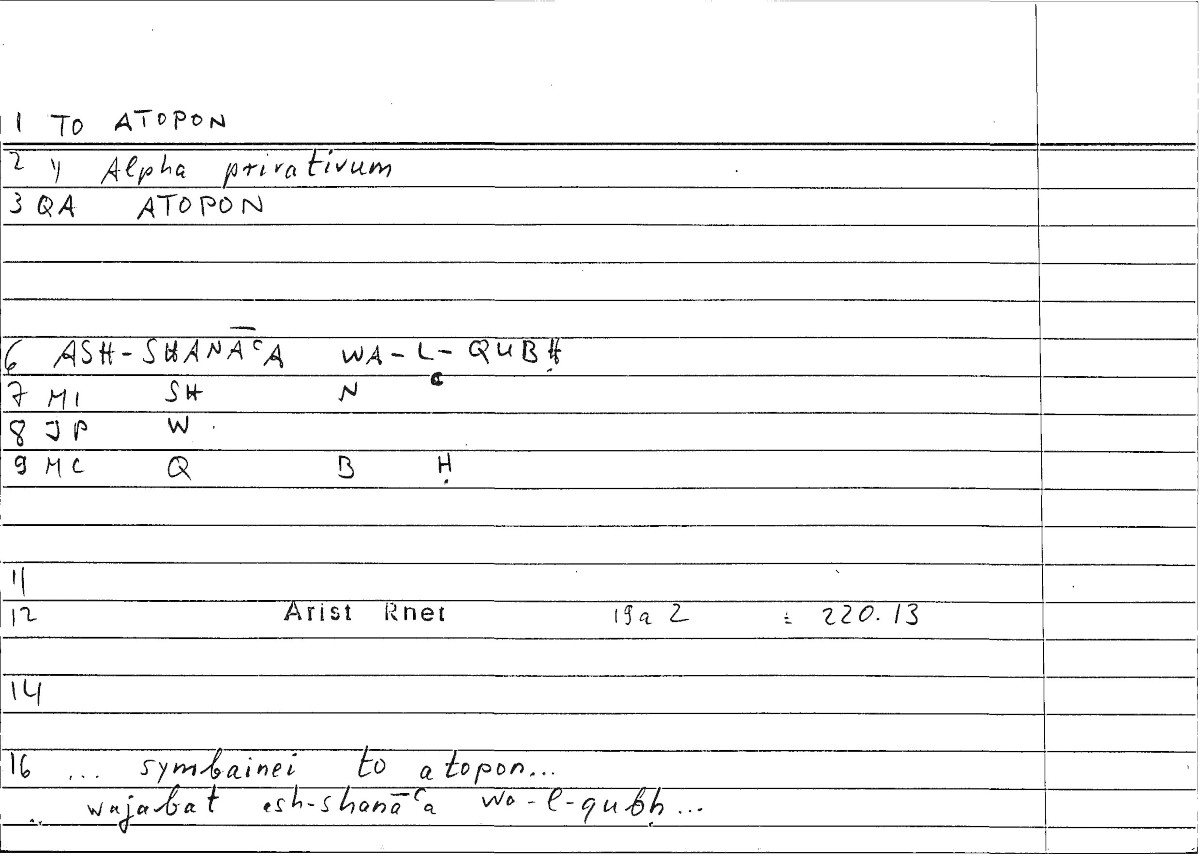 1 TO ATOPON
2 " Alpha privativum
3 QA ATOPON
6 ASH-SHANĀʿA WA-L-QUBḤ
7 MI SH N ʿ
8 JP W
9 MC Q B Ḥ
11
12 Arist Rhet 19a2 = 220.13
14
16 ... symbainei to atopon...
.. wajabat esh-shanāʿa wa-l-qubḥ...